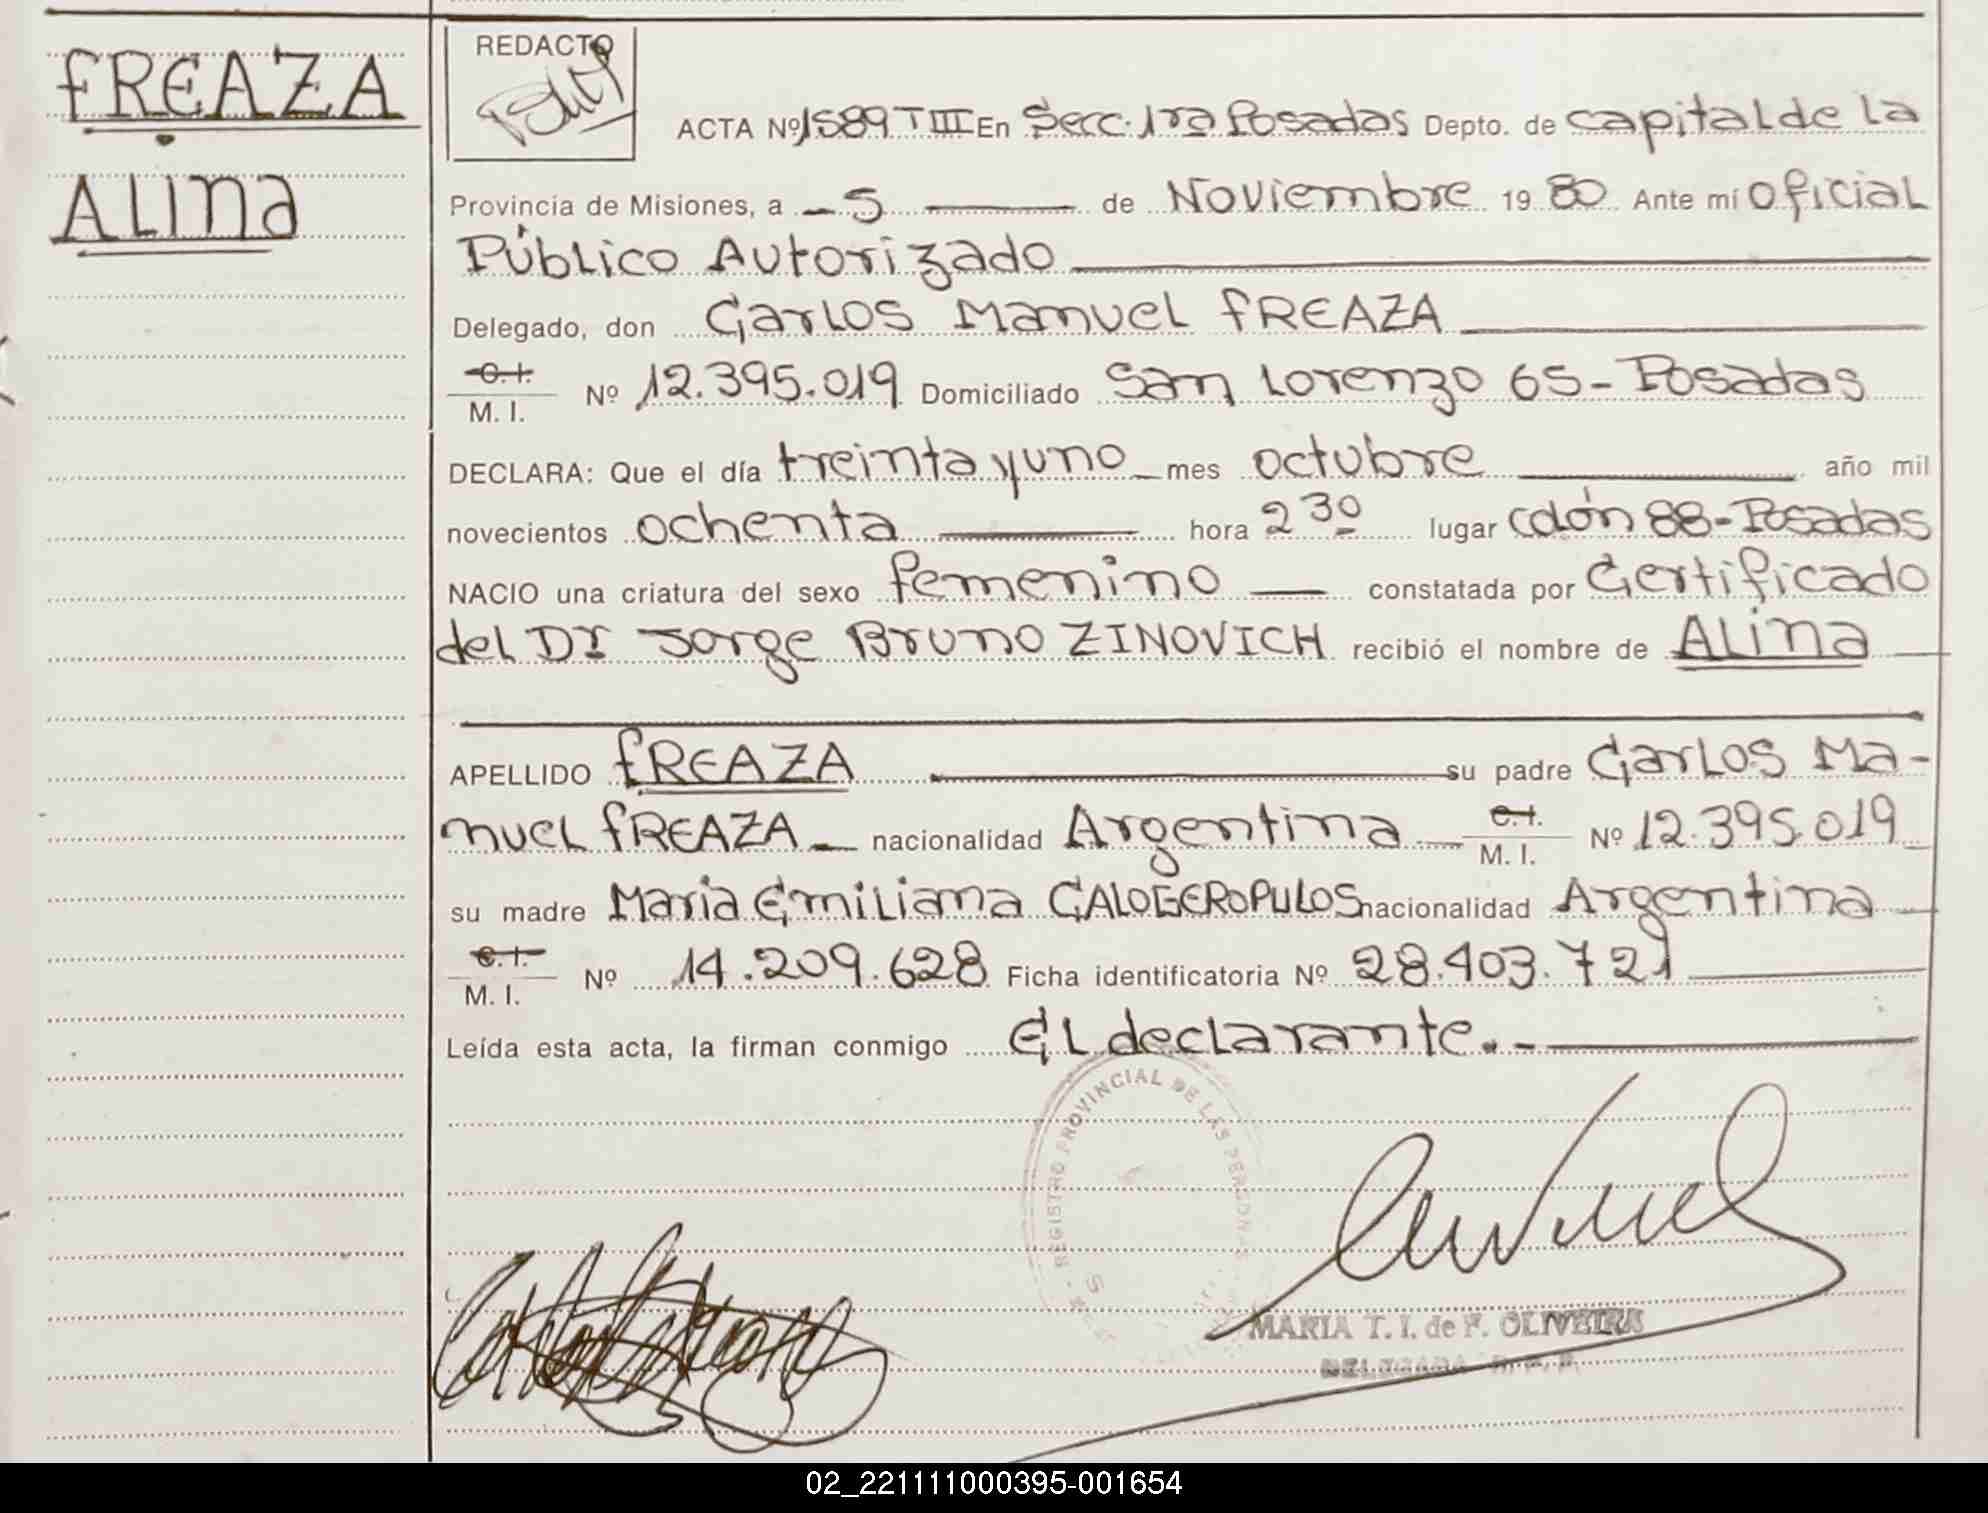 FREAZA
ALINA
REDACTO
ACTA Nº 1589 T III En Secc. 1ra Posadas Depto. de Capital de la
Provincia de Misiones, a - 5 de Noviembre 1980 Ante mí Oficial
Público Autorizado
Delegado, don Carlos Manuel FREAZA
C.I.
M. I. Nº 12.395.019 Domiciliado San Lorenzo 65 - Posadas
DECLARA: Que el día treinta y uno mes octubre año mil
novecientos ochenta hora 2 30 lugar Colón 88 - Posadas
NACIO una criatura del sexo femenino constatada por Certificado
del Dr Jorge Bruno ZINOVICH recibió el nombre de ALINA
APELLIDO FREAZA su padre Carlos Ma-
nuel FREAZA nacionalidad Argentina C.I. M. I. Nº 12.395.019
su madre Maria Emiliana CALOGEROPULOS nacionalidad Argentina
C.I.
M. I. Nº 14.209.628 Ficha identificatoria Nº 28.403.721
Leída esta acta, la firman conmigo El declarante.-
REGISTRO PROVINCIAL DE LAS PERSONAS
MARIA T. I. de F. OLIVEIRA
DELEGADA R. P. P.
02_221111000395-001654